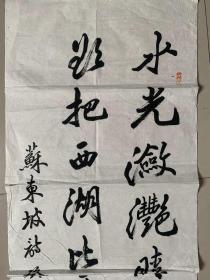 水光潋灧晴
欲把西湖比
蘇東坡詩